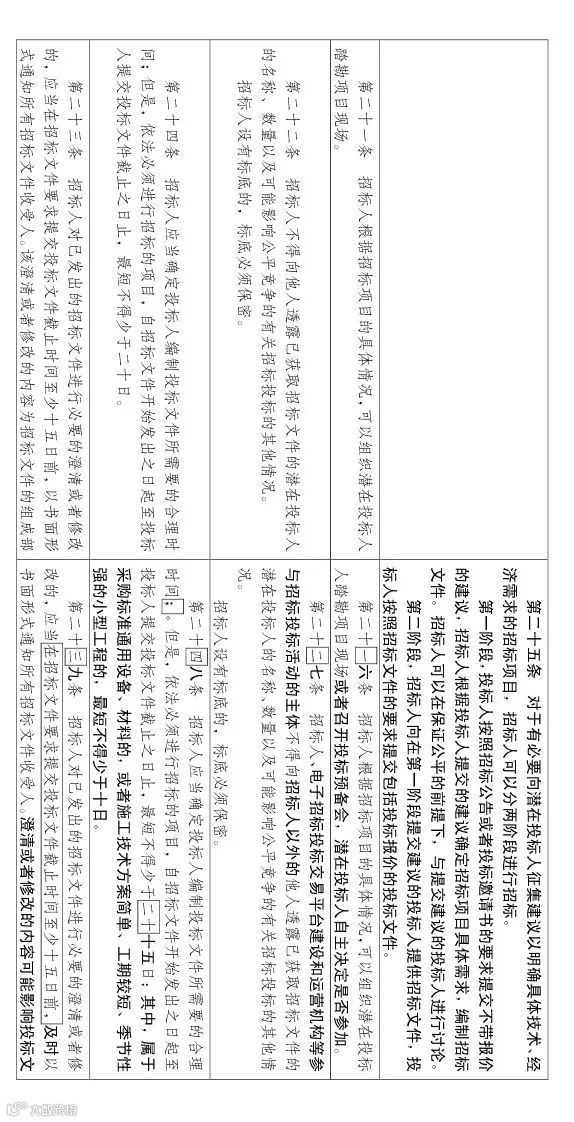 第二十五条　对于有必要向潜在投标人征集建议以明确具体技术、经
济需求的招标项目，招标人可以分两阶段进行招标。
第一阶段，投标人按照招标公告或者投标邀请书的要求提交不带报价
的建议，招标人根据投标人提交的建议确定招标项目具体需求，编制招标
文件。招标人可以在保证公平的前提下，与提交建议的投标人进行讨论。
第二阶段，招标人向在第一阶段提交建议的投标人提供招标文件，投
标人按照招标文件的要求提交包括投标报价的投标文件。
第二十一条　招标人根据招标项目的具体情况，可以组织潜在投标人
踏勘项目现场。
第二十一六条　招标人根据招标项目的具体情况，可以组织潜在投标
人踏勘项目现场或者召开投标预备会，潜在投标人自主决定是否参加。
第二十二条　招标人不得向他人透露已获取招标文件的潜在投标人
的名称、数量以及可能影响公平竞争的有关招标投标的其他情况。
招标人设有标底的，标底必须保密。
第二十二七条　招标人、电子招标投标交易平台建设和运营机构等参
与招标投标活动的主体不得向招标人以外的他人透露已获取招标文件的
潜在投标人的名称、数量以及可能影响公平竞争的有关招标投标的其他情
况。
招标人设有标底的，标底必须保密。
第二十四条　招标人应当确定投标人编制投标文件所需要的合理时
间；但是，依法必须进行招标的项目，自招标文件开始发出之日起至投标
人提交投标文件截止之日止，最短不得少于二十日。
第二十四八条　招标人应当确定投标人编制投标文件所需要的合理
时间；。但是，依法必须进行招标的项目，自招标文件开始发出之日起至
投标人提交投标文件截止之日止，最短不得少于二十十五日；其中，属于
采购标准通用设备、材料的，或者施工技术方案简单、工期较短、季节性
强的小型工程的，最短不得少于十日。
第二十三条　招标人对已发出的招标文件进行必要的澄清或者修改
的，应当在招标文件要求提交投标文件截止时间至少十五日前，以书面形
式通知所有招标文件收受人。该澄清或者修改的内容为招标文件的组成部
第二十三九条　招标人对已发出的招标文件进行必要的澄清或者修
改的，应当在招标文件要求提交投标文件截止时间至少十五日前，及时以
书面形式通知所有招标文件收受人。澄清或者修改的内容可能影响投标文
大数跨境